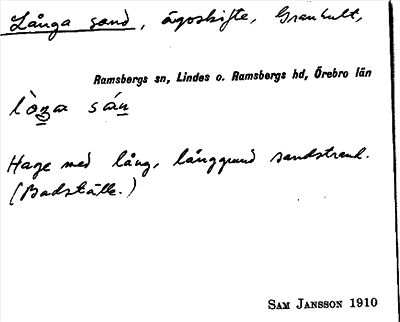 Långa sand, ägoskifte, Granhult,
Ramsbergs sn, Lindes o. Ramsbergs hd, Örebro län
Hage med lång, långgrund sandstrand.
(Badställe.)
SAM JANSSON 1910